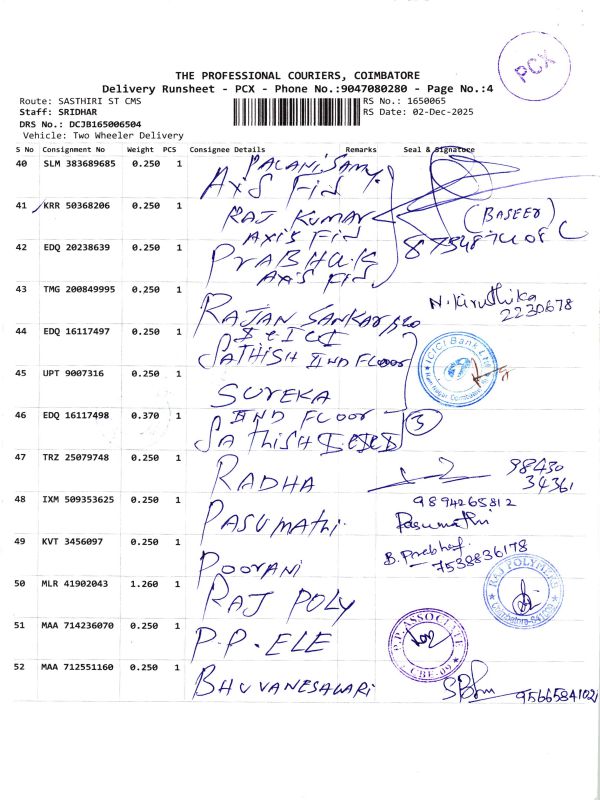 PCX
THE PROFESSIONAL COURIERS, COIMBATORE
Delivery Runsheet - PCX - Phone No.:9047080280 - Page No.:4
Route: SASTHIRI ST CMS RS No.: 1650065
Staff: SRIDHAR RS Date: 02-Dec-2025
DRS No.: DCJB165006504
Vehicle: Two Wheeler Delivery
S No Consignment No Weight PCS Consignee Details Remarks Seal & Signature
40 SLM 383689685 0.250 1 PALANISAMY.
AXIS FIN
41 KRR 50368206 0.250 1 RAJ KUMAR (BASEER)
AXIS FIN
42 EDQ 20238639 0.250 1 PRABHU.K
AXIS FIN
43 TMG 200849995 0.250 1 RAJAN SANKAR N.Kiruthika
2230678
44 EDQ 16117497 0.250 1 SATHISH IIND FLOOR ICICI Bank Ltd
45 UPT 9007316 0.250 1 SUREKA
46 EDQ 16117498 0.370 1 IIND FLOOR 3
SATHISH
47 TRZ 25079748 0.250 1 RADHA 98430
34361
48 IXM 509353625 0.250 1 PASUMATHI. 9894265812
Pasumathi
49 KVT 3456097 0.250 1 POORANI B. Prabha 7538836178
50 MLR 41902043 1.260 1 RAJ POLY RAJ POLYMERS
51 MAA 714236070 0.250 1 P.P. ELE P.P. ASSOCIATE
CBE-09
52 MAA 712551160 0.250 1 BHUVANESAWARI